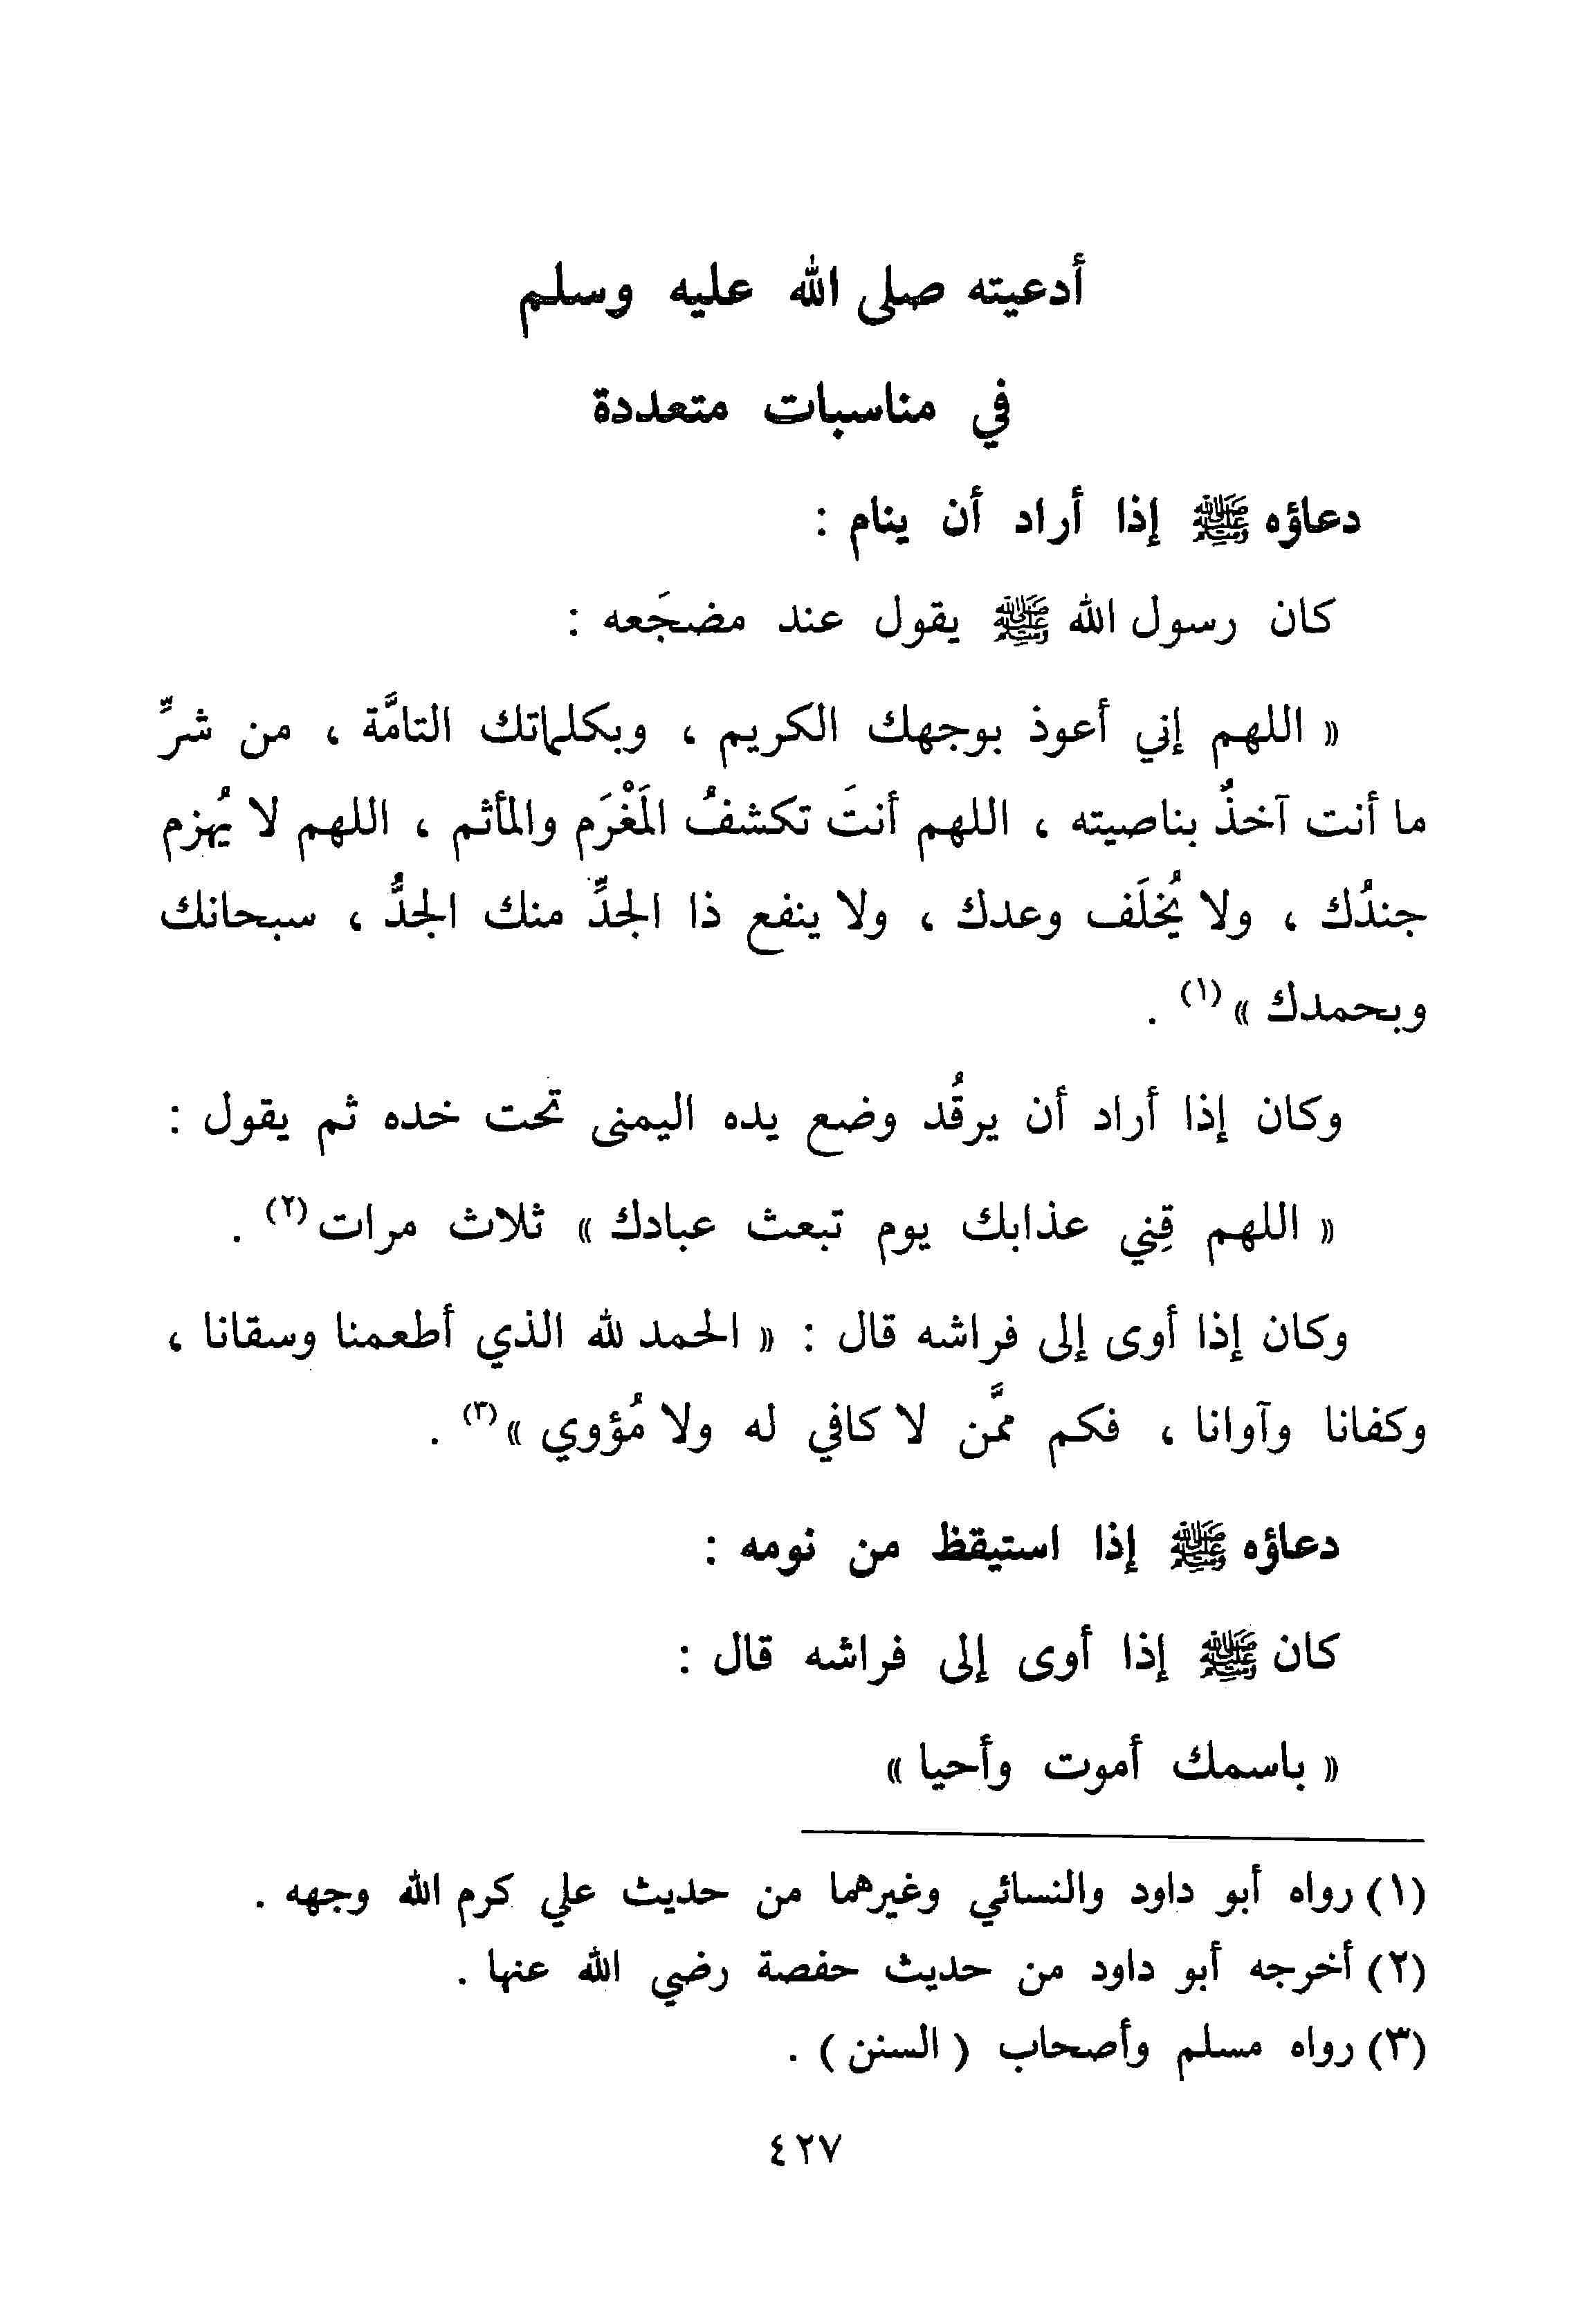 أدعيته صلى الله عليه وسلم
في مناسبات متعددة
دعاؤه ﷺ إذا أراد أن ينام :
كان رسول الله ﷺ يقول عند مضجَعه :
« اللهم إني أعوذ بوجهك الكريم ، وبكلماتك التامَّة ، من شرِّ
ما أنت آخذٌ بناصيته ، اللهم أنتَ تكشفُ المَغْرَم والمأثم ، اللهم لا يُهزم
جندُك ، ولا يُخلَف وعدك ، ولا ينفع ذا الجدِّ منك الجدُّ ، سبحانك
وبحمدك » (١) .
وكان إذا أراد أن يرقُد وضع يده اليمنى تحت خده ثم يقول :
« اللهم قِني عذابك يوم تبعث عبادك » ثلاث مرات (٢) .
وكان إذا أوى إلى فراشه قال : « الحمد لله الذي أطعمنا وسقانا ،
وكفانا وآوانا ، فكم ممَّن لا كافي له ولا مُؤوي » (٣) .
دعاؤه ﷺ إذا استيقظ من نومه :
كان ﷺ إذا أوى إلى فراشه قال :
« باسمك أموت وأحيا »
(١) رواه أبو داود والنسائي وغيرهما من حديث علي كرم الله وجهه .
(٢) أخرجه أبو داود من حديث حفصة رضي الله عنها .
(٣) رواه مسلم وأصحاب ( السنن ) .
٤٢٧